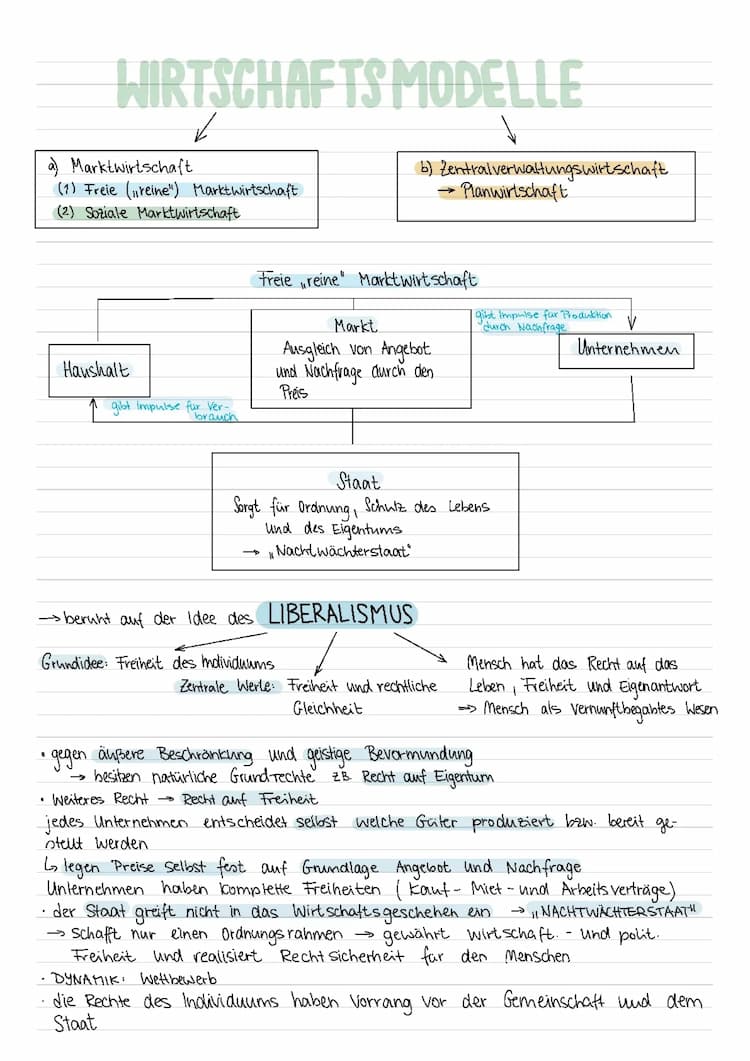 WIRTSCHAFTSMODELLE
a) Marktwirtschaft
(1) Freie („reine") Marktwirtschaft
(2) Soziale Marktwirtschaft
b) Zentralverwaltungswirtschaft
→ Planwirtschaft
Freie „reine" Marktwirtschaft
Haushalt
gibt Impulse für Ver-
brauch
Markt
Ausgleich von Angebot
und Nachfrage durch den
Preis
gibt Impulse für Produktion
durch Nachfrage
Unternehmen
Staat
Sorgt für Ordnung, Schutz des Lebens
und des Eigentums
→ „Nachtwächterstaat"
→ beruht auf der Idee des LIBERALISMUS
Grundidee: Freiheit des Individuums
Zentrale Werte: Freiheit und rechtliche
Gleichheit
Mensch hat das Recht auf das
Leben, Freiheit und Eigenantwort
⇒ Mensch als vernunftbegabtes Wesen
• gegen äußere Beschränkung und geistige Bevormundung
→ besitzen natürliche Grundrechte z.B. Recht auf Eigentum
• weiteres Recht → Recht auf Freiheit
jedes Unternehmen entscheidet selbst welche Güter produziert bzw. bereit ge-
stellt werden
↳ legen Preise selbst fest auf Grundlage Angebot und Nachfrage
Unternehmen haben komplette Freiheiten (Kauf- Miet- und Arbeitsverträge)
• der Staat greift nicht in das Wirtschaftsgeschehen ein → „NACHTWÄCHTERSTAAT"
→ schaft nur einen Ordnungsrahmen → gewährt wirtschaft. - und polit.
Freiheit und realisiert Rechtsicherheit für den Menschen
• DYNAMIK: Wettbewerb
• die Rechte des Individuums haben Vorrang vor der Gemeinschaft und dem
Staat